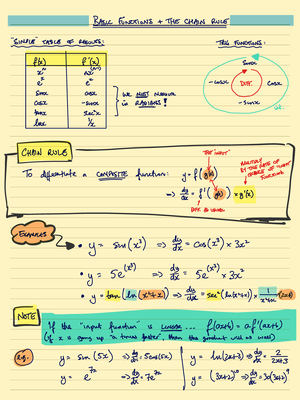 BASIC FUNCTIONS + THE CHAIN RULE
"SIMPLE" TABLE OF RESULTS:
f(x) f'(x)
xⁿ nxⁿ⁻¹
eˣ eˣ
sinx cosx
cosx -sinx
tanx sec²x
lnx 1/x
WE MUST
in RADIANS!
TRIG FUNCTIONS:
sinx
-cosx DIFF. cosx
-sinx
CHAIN RULE
To differentiate a COMPOSITE function:
"THE INPUT"
y = f(g(x))
⇒ dy/dx = f'(g(x)) × g'(x)
MULTIPLY BY THE RATE OF CHANGE OF "INPUT" FUNCTION
DIFF. AS USUAL
EXAMPLES
• y = sin(x³) ⇒ dy/dx = cos(x³) × 3x²
• y = 5e^(x³) ⇒ dy/dx = 5e^(x³) × 3x²
• y = tan(ln(x²+x)) ⇒ dy/dx = sec²(ln(x²+x)) × 1/(x²+x) (2x+1)
NOTE
If the "input function" is LINEAR ... f(ax+b) → af'(ax+b)
(If x is going up 'a' times faster, then the gradient will as well)
e.g. y = sin(5x) ⇒ dy/dx = 5cos(5x)
y = e^(7x) ⇒ dy/dx = 7e^(7x)
y = ln(2x+3) ⇒ dy/dx = 2/(2x+3)